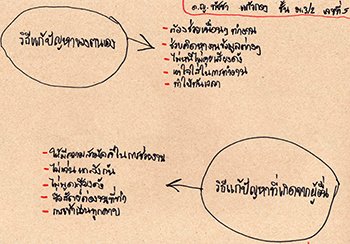 ด.ญ. ชั้น ม.3/2 เลขที่ 5
วิธีแก้ปัญหาของตนเอง
- ต้องช่วยเพื่อนๆ ทำงาน
- ช่วยคิดหาข้อมูลต่างๆ
- ไม่หนีไม่คุยเสียงดัง
- เอาใจใส่ในการทำงาน
- ทำให้ทันเวลา
- ให้มีความสามัคคีในการช่วยงาน
- ไม่เล่น แกล้งกัน
- ไม่พูดเสียงดัง
- ซื่อสัตย์ต่องานที่ทำ
- การเข้าเรียนทุกคาบ
วิธีแก้ปัญหาที่เกิดจากผู้อื่น